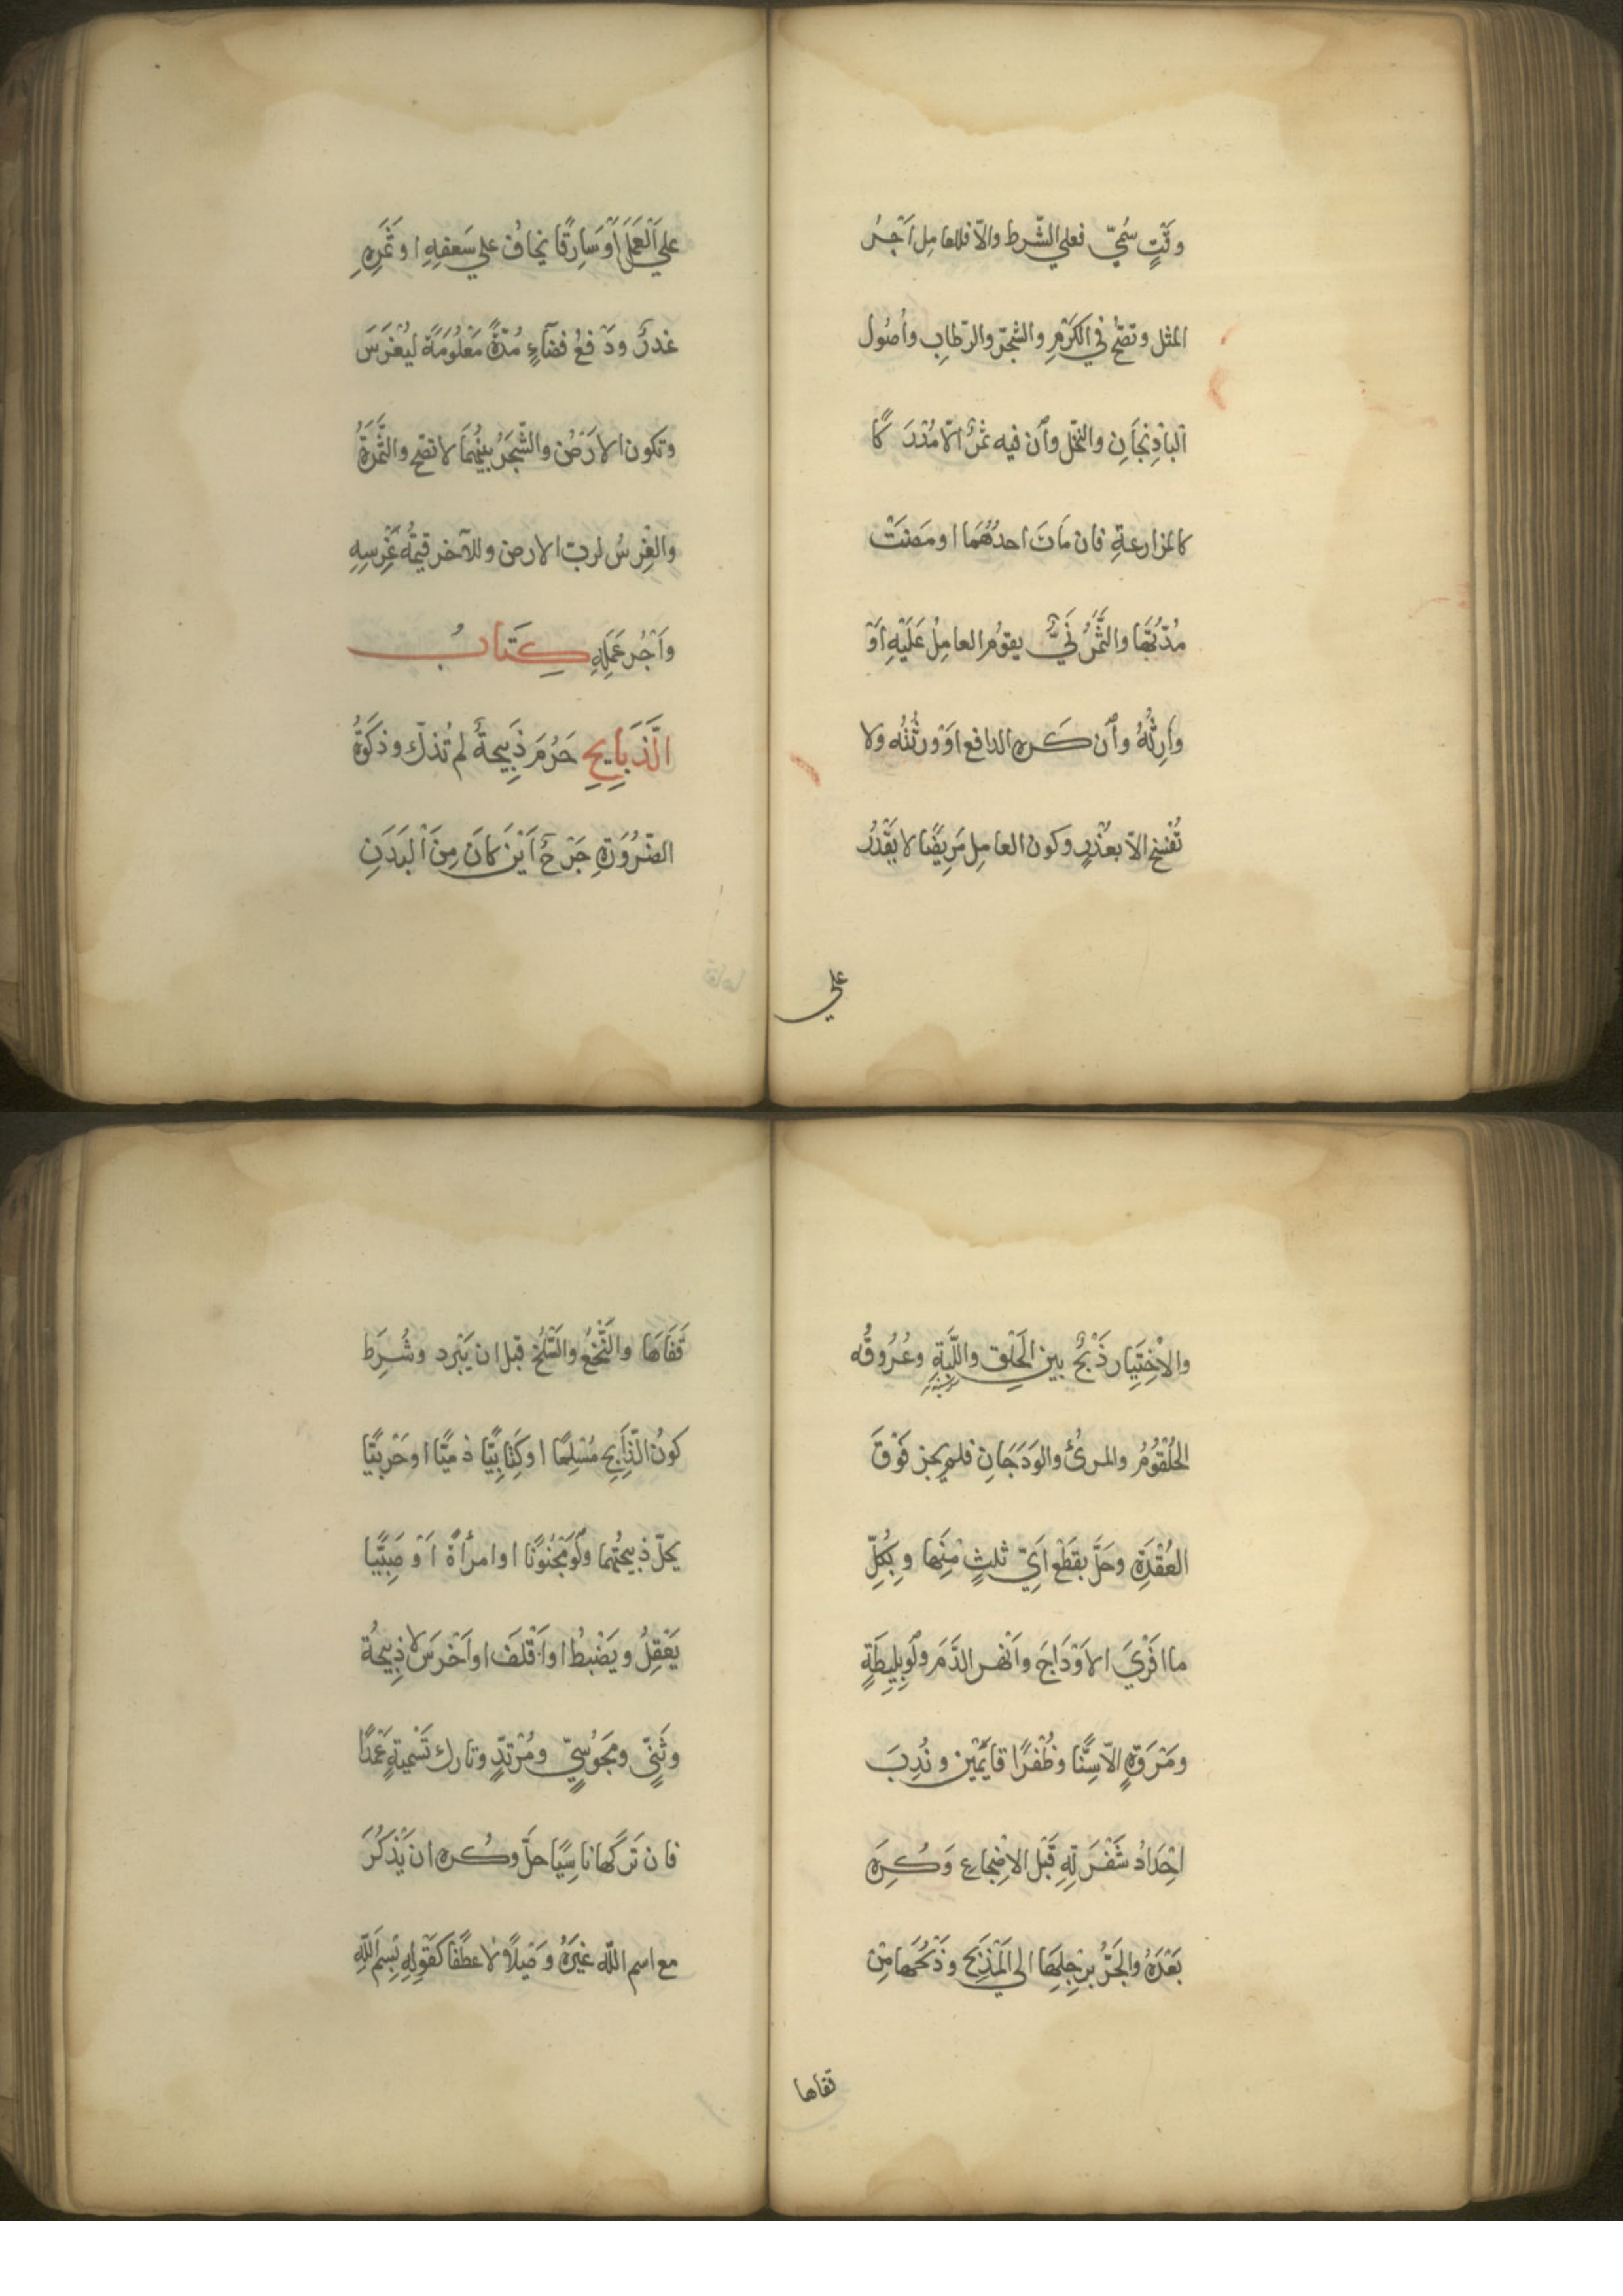 وقتٍ سُمّيَ فعلي الشّرط والّا فللعامِل اَجْرُ
المثل وتصحّ في الكَرْمِ والشّجر والرّطابِ واُصُول
الباذِنجَانِ والنّخل واِن فيه ثمرٌ الّا مُدْرَكًا
كالمزارعةِ فان مَاتَ احدُهُمَا او مَضَتْ
مُدّتُهَا والثَّمَرُ نَيٌّ يقوُم العامِلُ عَلَيْهِ اَوْ
وارِثُهُ واِن كره الدافع اوْ ورثَتُه ولا
تُفْسَخ الّا بعُذْرٍ وكون العامِل مَرِيضًا لا يَقْدرُ
علي
علي اَلعَمَلِ اَوْ سَارِقًا يخافُ علي سَعفِهِ او ثَمَرِهِ
عذرٌ ودَفعُ فضَآءٍ مُدّةً مَعْلُوَمَةً ليُغْرَسَ
وتكون الارَضُ والشّجَرُ بينُهمَا لا تصحّ والثَّمَرَةُ
والغِرْسُ لربّ الارض وللآخر قيمَةُ غَرْسِهِ
وَاَجْرُ عَمَلِهِ كِتَابُ
الَّذَبَايِحِ حَرُمَ ذَبِيحةٌ لم تُذكّ وذكَوةُ
الضّرُوَرةِ جَرْحٌ اَيْنَ كَانَ مِنَ البَدَنِ
والاخْتِيَار ذَبْحٌ بين الحَلْقِ واللَّبّةِ وعُرُوقُه
الحُلْقُوُمُ والمرئُ والوَدَجَانِ فلم يجز فَوْقَ
العُقْدَةِ وحَلَّ بقَطْع اَيّ ثلثٍ مْنَها وبِكلِّ
ما افَرْيَ الاَوْدَاجَ واَنْهر الدَّمَ ولَو بلِيطَةٍ
ومَرْوَةٍ الّا سِنًّا وظُفرًا قايمَيْن ونُدِبَ
اِحْدَادُ شَفْرَتِهِ قَبْل الاضِجاعِ وَكُرِهَ
بَعْدَهُ والجَرُّ بِرْجِلهَا الي المَذْبَحِ وذَبْحُهَا مِنْ
قفاها
قَفَاهَا والنّخْعُ والسَّلْخُ قبل ان يَبْرد وشُرِطَ
كونُ الذّابِح مُسْلِمًا او كِتَابِيًّا ذميًّا او حَرْبيًّا
يحلّ ذبيحتُهما ولَو مَجْنُونًا او امرأةً اَوْ صَبِيًّا
يَعْقِلُ ويَضْبطُ او اَقْلَفَ او اَخْرَسَ لا ذبيحُة
وثَنِيٍّ ومَجُوُسِيٍّ ومُرْتدٍّ وتارك تَسْميةٍ عَمْدًا
فان تَرَكَها ناسِيًا حلَّ وكُره ان يَذْكُرَ
مع اسم اللّه غيَرُه وَصْلًا ولا عطًفا كقَوِلِه بِسِم اللّهِ